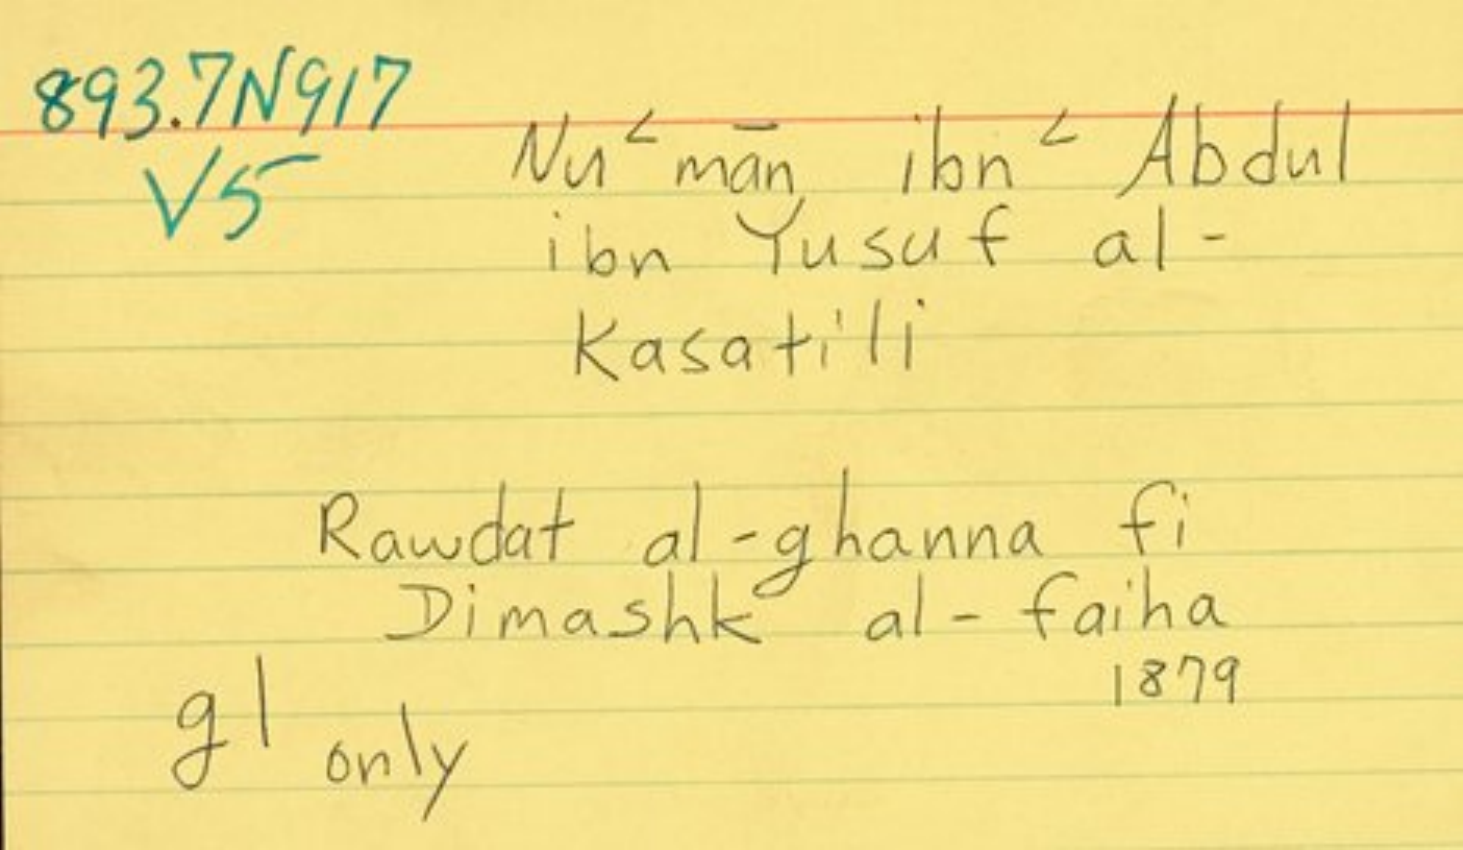 893.7N917
V5
Nu‘mān ibn ‘Abdul
ibn Yusuf al-
Kasatili
Rawdat al-ghanna fi
Dimashk al-faiha
1879
gl only